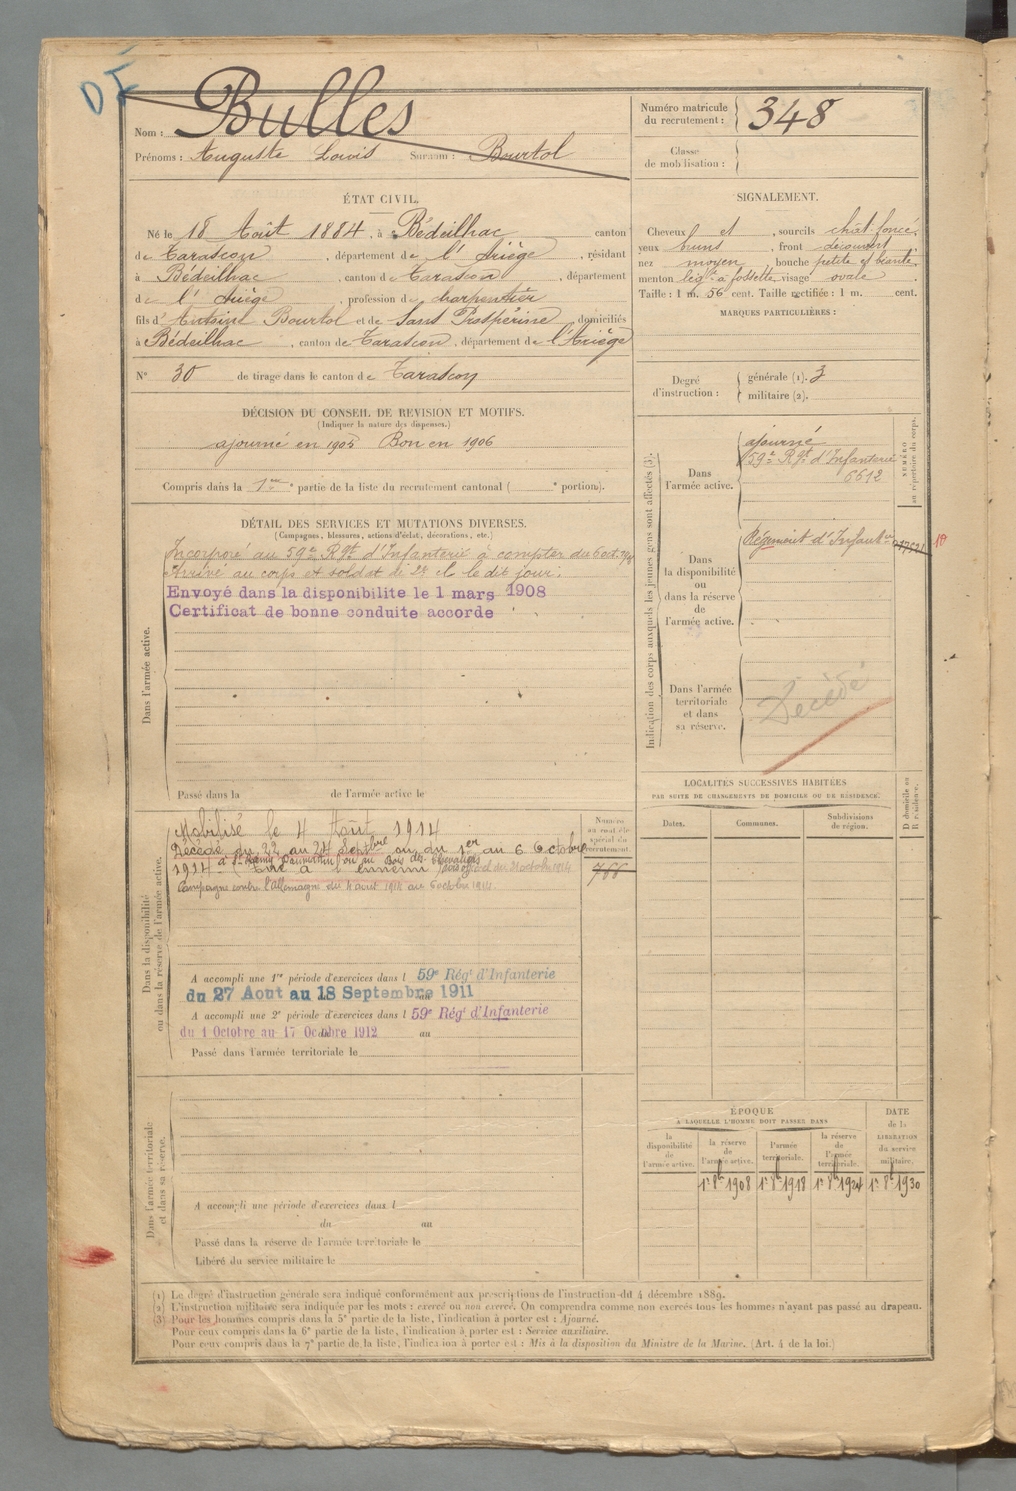 DÉ
Nom : Bulles
Prénoms : Auguste Louis Surnom : Bourtol
Numéro matricule du recrutement : 348
Classe de mobilisation :
ÉTAT CIVIL.
Né le 18 Août 1884, à Bédeilhac canton
de Tarascon, département de l'Ariège, résidant
à Bédeilhac, canton de Tarascon, département
de l'Ariège, profession de charpentier
fils d'Antoine Bourtol et de Sans Prospérine domiciliés
à Bédeilhac, canton de Tarascon, département de l'Ariège
N° 30 de tirage dans le canton de Tarascon
SIGNALEMENT.
Cheveux et, sourcils chât. foncé,
yeux bruns, front découvert
nez moyen, bouche petite et béante,
menton lég.t à fossette, visage ovale
Taille : 1 m. 56 cent. Taille rectifiée : 1 m. cent.
MARQUES PARTICULIÈRES :
Degré d'instruction : générale (1). 3
militaire (2).
DÉCISION DU CONSEIL DE REVISION ET MOTIFS.
(Indiquer la nature des dispenses.)
ajourné en 1905 Bon en 1906
Compris dans la 1re partie de la liste du recrutement cantonal ( e portion).
DÉTAIL DES SERVICES ET MUTATIONS DIVERSES.
(Campagnes, blessures, actions d'éclat, décorations, etc.)
Dans l'armée active.
Incorporé au 59e Rgt d'Infanterie à compter du 6 oct.
Arrivé au corps et soldat de 2e cl. le dit jour.
Envoyé dans la disponibilite le 1 mars 1908
Certificat de bonne conduite accorde
Passé dans la de l'armée active le
Indication des corps auxquels les jeunes gens sont affectés (3).
NUMÉRO au répertoire du corps.
Dans l'armée active.
ajourné
59e Rgt d'Infanterie
6612
Dans la disponibilité ou dans la réserve de l'armée active.
Régiment d'Infanterie
Dans l'armée territoriale et dans sa réserve.
Décédé
Dans la disponibilité ou dans la réserve de l'armée active.
Numéro au contrôle spécial du recrutement
766
Mobilisé le 4 Août 1914
Décédé du 22 au 24 Septbre ou du 1er au 6 Octobre
1914 Tué à l'ennemi
Campagne contre l'Allemagne du 4 août 1914 au 6 octobre 1914.
A accompli une 1re période d'exercices dans l 59e Régt d'Infanterie
du 27 Aout au 18 Septembre 1911
A accompli une 2e période d'exercices dans l 59e Régt d'Infanterie
du 1 Octobre au 17 Octobre 1912 au
Passé dans l'armée territoriale le
LOCALITÉS SUCCESSIVES HABITÉES
PAR SUITE DE CHANGEMENTS DE DOMICILE OU DE RÉSIDENCE.
Dates. Communes. Subdivisions de région. D. domicile ou R. résidence.
ÉPOQUE
A LAQUELLE L'HOMME DOIT PASSER DANS
DATE de la LIBÉRATION du service militaire.
la disponibilité de l'armée active. la réserve de l'armée active. l'armée territoriale. la réserve de l'armée territoriale.
1er 8bre 1908 1er 8bre 1918 1er 8bre 1924 1er 8bre 1930
Dans l'armée territoriale et dans sa réserve.
A accompli une période d'exercices dans l
du au
Passé dans la réserve de l'armée territoriale le
Libéré du service militaire le
(1) Le degré d'instruction générale sera indiqué conformément aux prescriptions de l'instruction du 4 décembre 1889.
(2) L'instruction militaire sera indiquée par les mots : exercé ou non exercé. On comprendra comme non exercés tous les hommes n'ayant pas passé au drapeau.
(3) Pour les hommes compris dans la 5e partie de la liste, l'indication à porter est : Ajourné.
Pour ceux compris dans la 6e partie de la liste, l'indication à porter est : Service auxiliaire.
Pour ceux compris dans la 7e partie de la liste, l'indication à porter est : Mis à la disposition du Ministre de la Marine. (Art. 4 de la loi.)